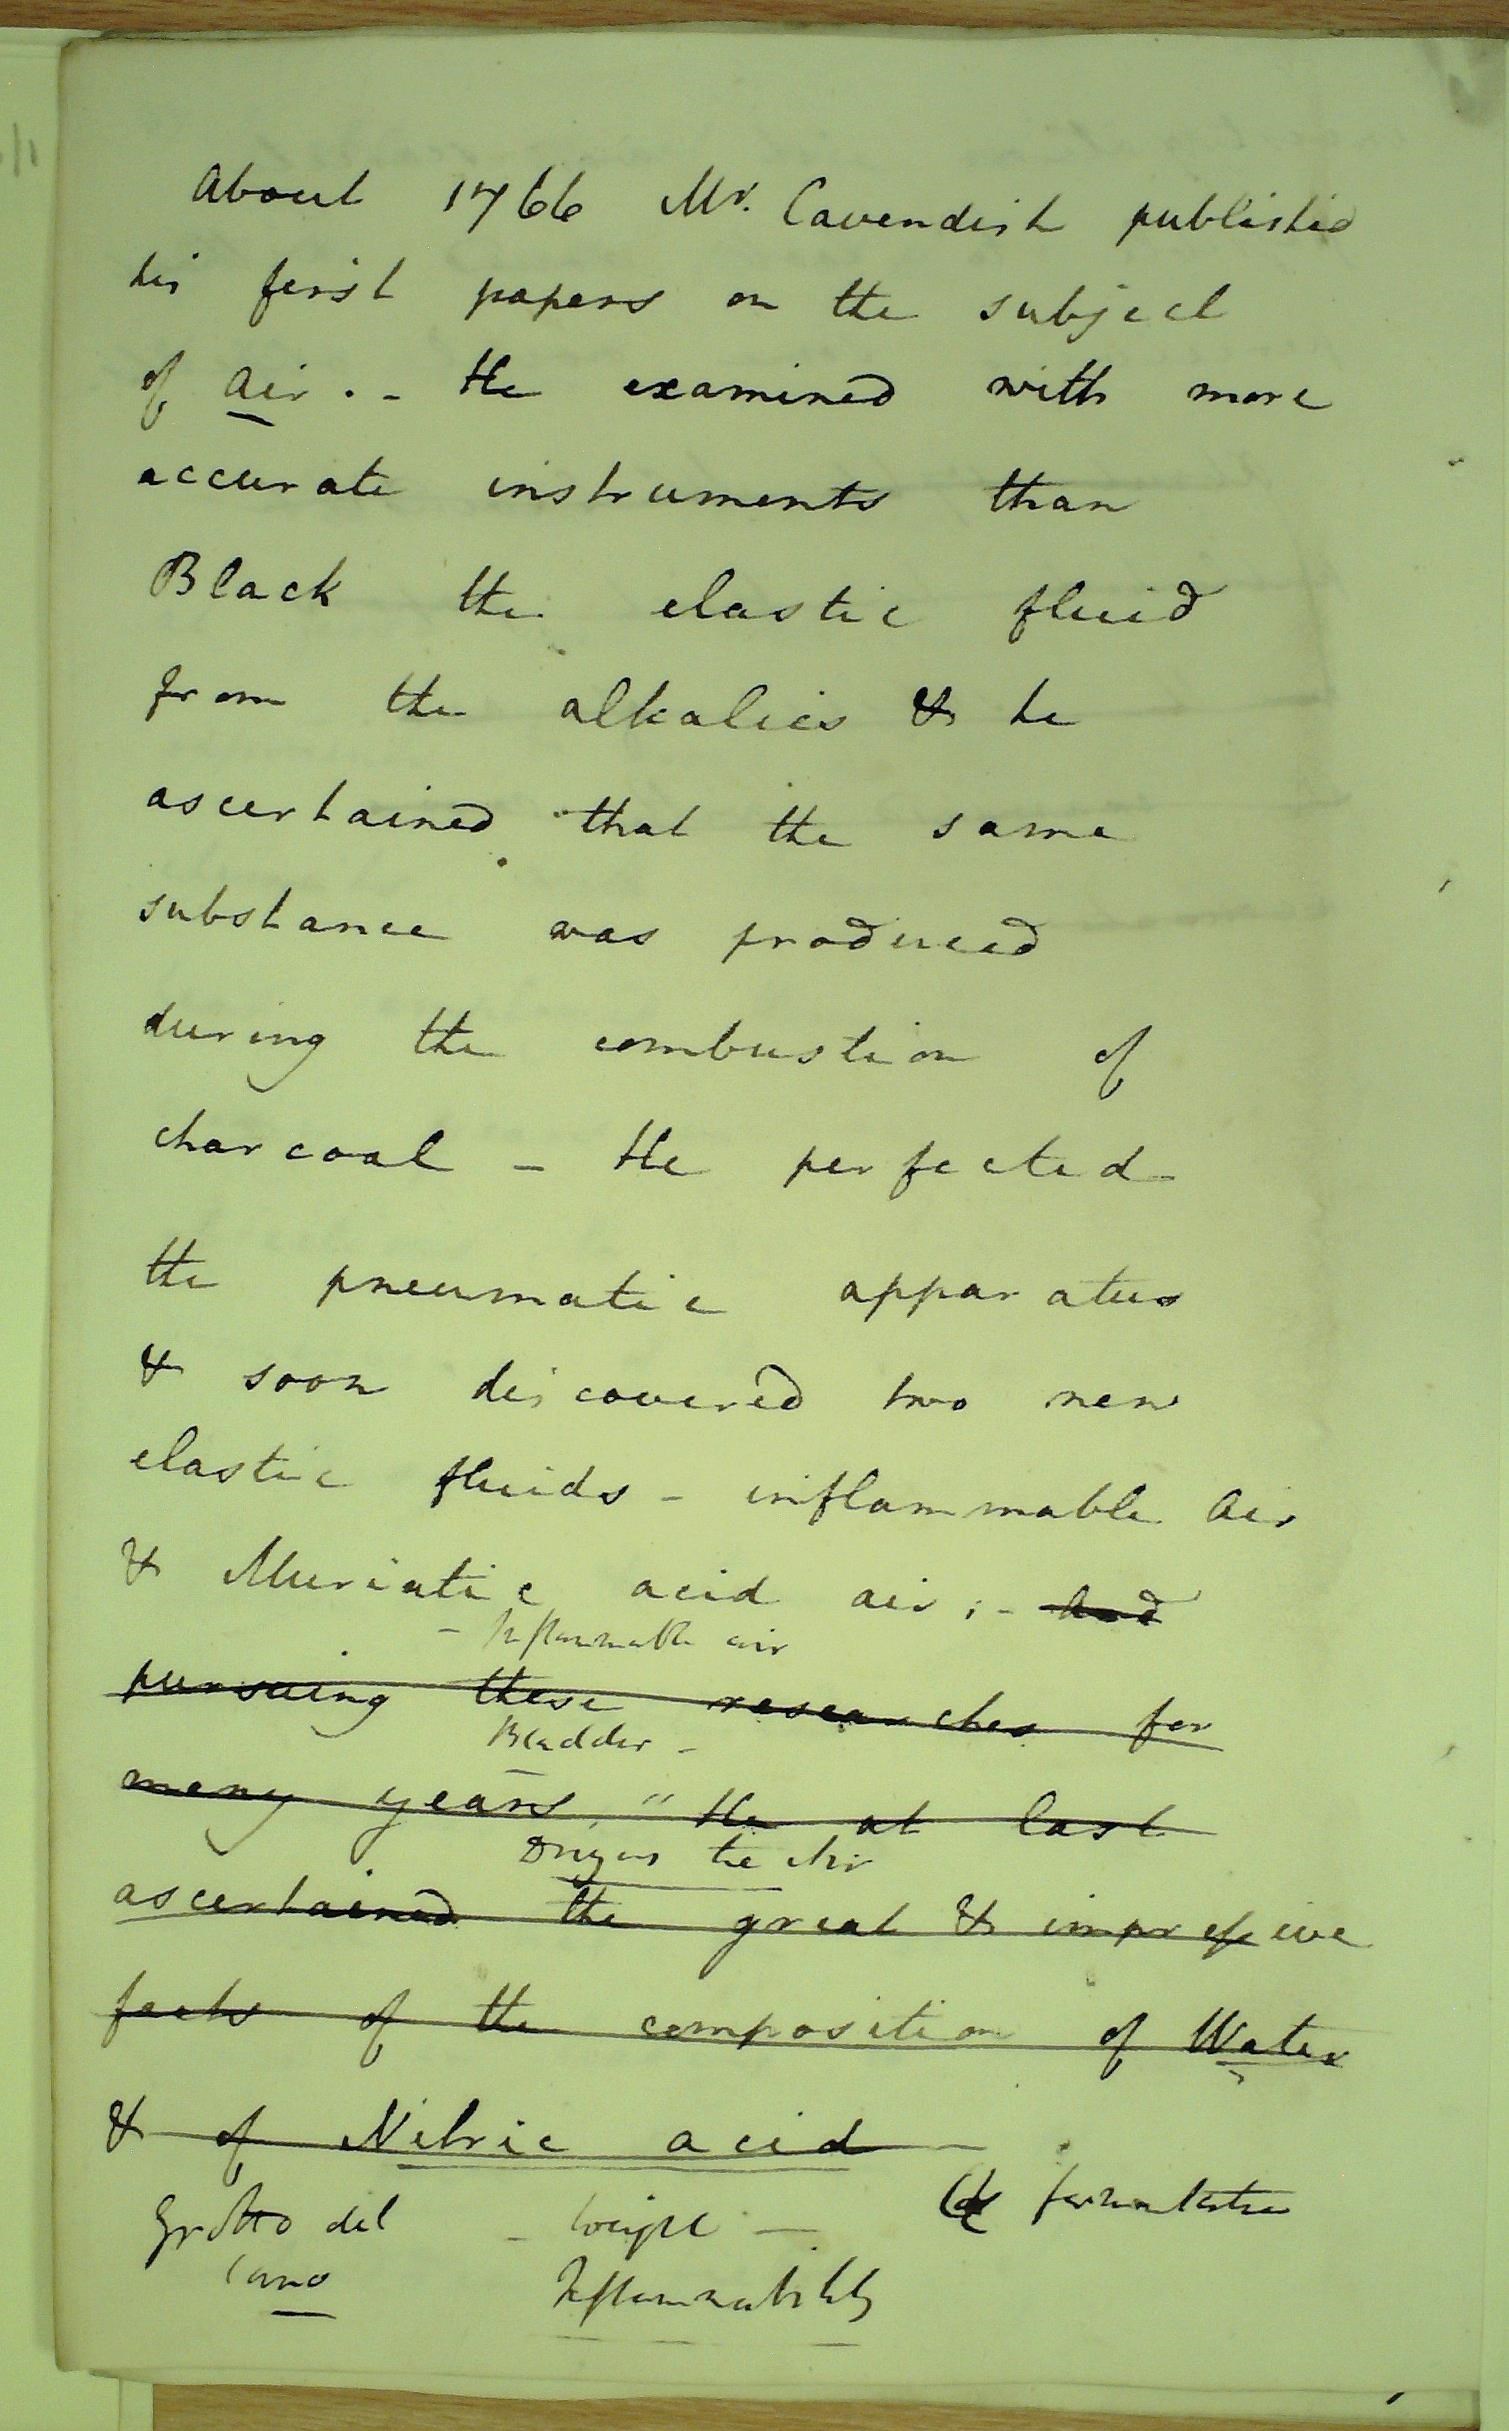 About 1766 Mr. Cavendish published
his first papers on the subject
of air. - He examined with more
accurate instruments than
Black the elastic fluid
from the alkalies & he
ascertained that the same
substance was produced
during the combustion of
charcoal - He perfected
the pneumatic apparatus
& soon discovered two new
elastic fluids - inflammable air
& Muriatic acid air; - and
- Inflammable air
pursuing these researches for
Bladder -
many years, " He at last
the Air
ascertained the great & impressive
facts of the composition of Water
& of Nitric acid -
Grotto del - weight - fermentation
Cano Inflammability